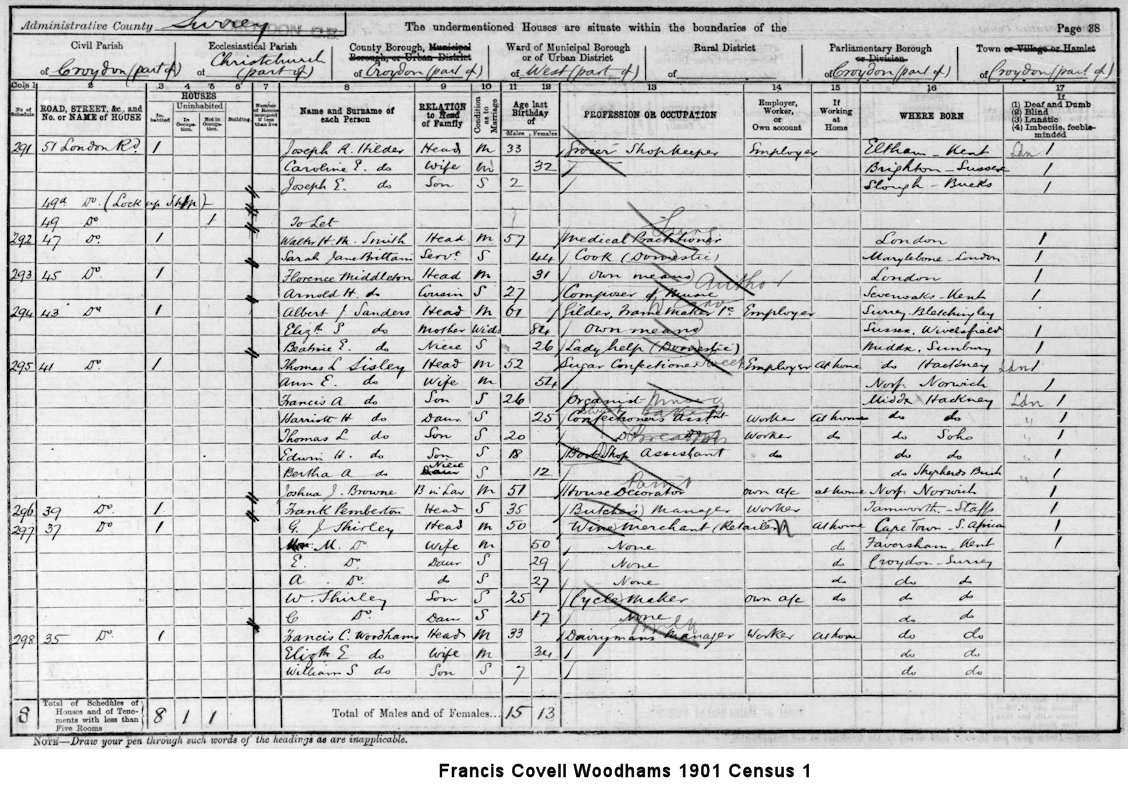 Administrative County Surrey The undermentioned Houses are situate within the boundaries of the Page 38
Civil Parish Ecclesiastical Parish County Borough, Municipal Borough, or Urban District Ward of Municipal Borough or of Urban District Rural District Parliamentary Borough or Division Town or Village or Hamlet
of Croydon (part of) of Christchurch (part of) of Croydon (part of) of West (part of) of of Croydon (part of) of Croydon (part of)
Cols 1 2 3 4 5 6 7 8 9 10 11 12 13 14 15 16 17
No. of Schedule ROAD, STREET, &c., and No. or NAME of HOUSE HOUSES Inhabited Uninhabited In Occupation. Not in Occupation. Building. Number of Rooms occupied if less than five Name and Surname of each Person RELATION to Head of Family Condition as to Marriage Age last Birthday of Males Females PROFESSION OR OCCUPATION Employer, Worker, or Own account If Working at Home WHERE BORN If (1) Deaf and Dumb (2) Blind (3) Lunatic (4) Imbecile, feeble-minded
291 51 London Rd. 1 Joseph R. Hilder Head M 33 Grocer Shopkeeper Employer Eltham - Kent Ldn 1
Caroline E. do Wife M 32 Brighton - Sussex 1
Joseph E. do Son S 2 Slough - Bucks 1
49a Do. (Lock up Shop)
49 Do 1 To Let
292 47 Do. 1 Walter H. M. Smith Head M 57 Medical Practitioner London 1
Sarah Jane Brittain Servt. S 44 Cook (Domestic) Marylebone - London 1
293 45 Do 1 Florence Middleton Head M 31 own means London 1
Arnold H. do Cousin S 27 Composer of Music Author Sevenoaks - Kent 1
294 43 Do 1 Albert J. Sanders Head M 61 Gilder, Frame Maker &c. Employer Surrey Bletchingley
Elizth S do Mother Wid. 84 own means Sussex, Wivelsfield 1
Beatrice E. do Niece S 26 Lady help (Domestic) Middx, Sunbury 1
295 41 Do. 1 Thomas L Sisley Head M 52 Sugar Confectioner Sweet Employer At home do Hackney Ldn 1
Ann E. do Wife M 54 Norf. Norwich 1
Francis A do Son S 26 Organist Music Middx Hackney Ldn 1
Harriott H do Daur S 25 Confectioners Assistnt Worker At home do do
Thomas L do Son S 20 Do Worker do do Soho
Edwin H. do Son S 18 Boot Shop Assistant do do do
Bertha A do Niece Daur S 12 do Shepherds Bush
Joshua J. Browne B in Law M 51 House Decorator Paint own a/c at home Norf. Norwich 1
296 39 Do. 1 Frank Pemberton Head S 35 (Butchers) Manager Worker Tamworth - Staffs 1
297 37 Do 1 G. J Shirley Head M 50 Wine Merchant (Retailer) At home Cape Town - S. African 1
M. Do Wife M 50 None do Faversham, Kent 1
E. Do Daur S 29 None do Croydon - Surrey
A Do. do S 27 None do do do
W. Shirley Son S 25 Cycle Maker own a/c do do do
C Do. Daur S 17 None do do
298 35 Do 1 Francis C. Woodhams Head M 33 Dairymans Manager Worker At home do do
Elizth E do Wife M 34 do do
William S do Son S 7 do do
8 Total of Schedules of Houses and of Tenements with less than Five Rooms 8 1 1 Total of Males and of Females... 15 13
NOTE—Draw your pen through such words of the headings as are inapplicable.
Francis Covell Woodhams 1901 Census 1